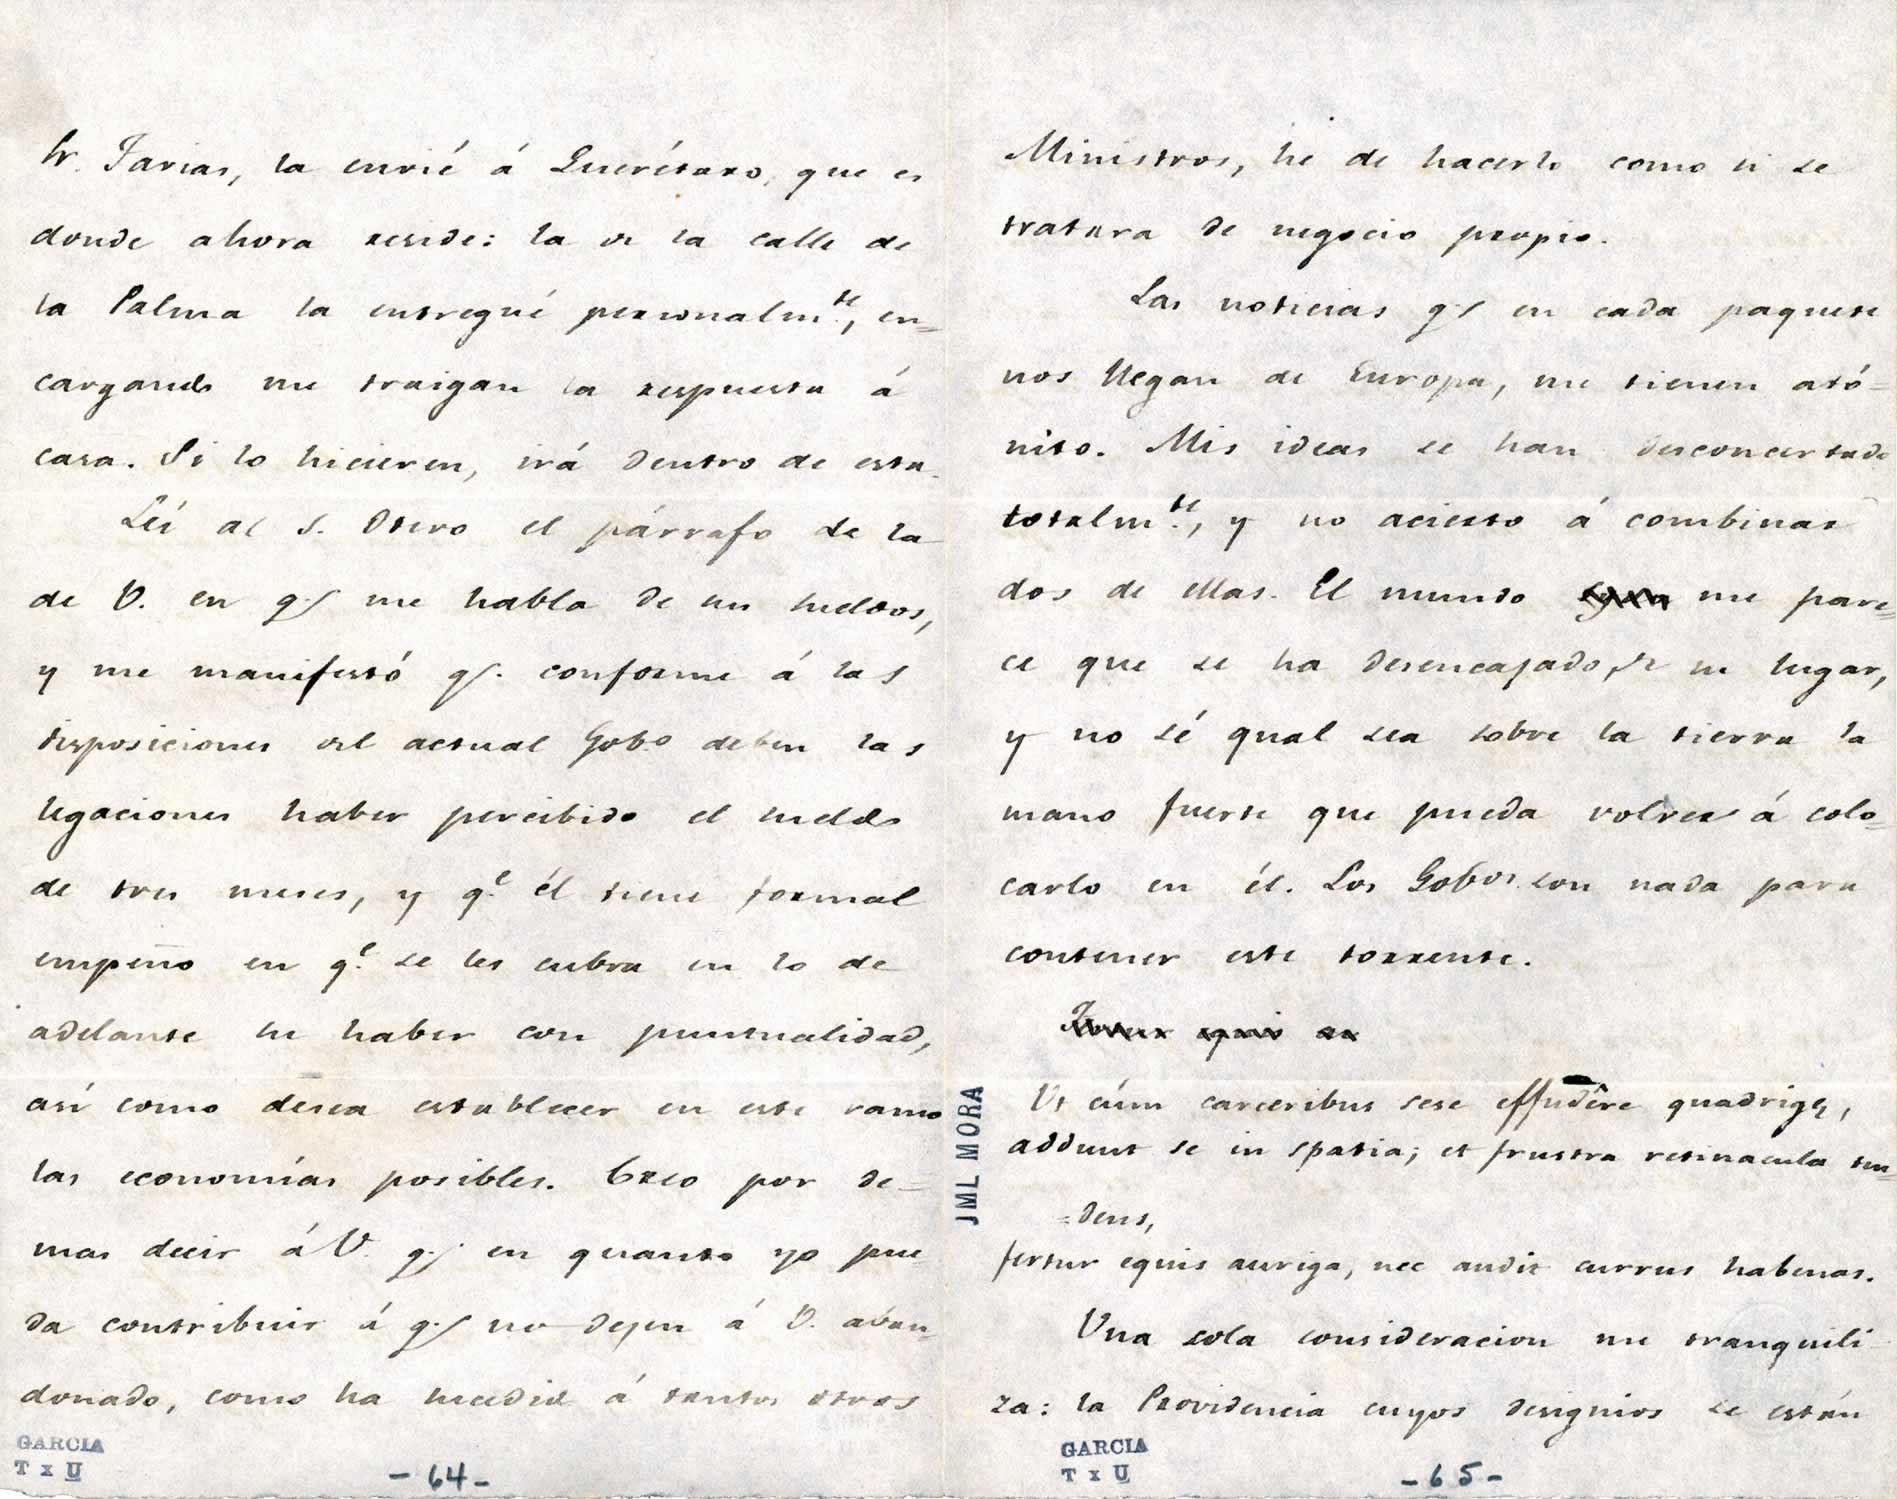 Sr. Farias, la envié á Querétaro, que es
donde ahora reside: la de la calle de
la Palma la entregué personalm.te, en=
cargando me traigan la respuesta á
casa. Si lo hicieren, irá dentro de esta.
Leí al S. Otero el párrafo de la
de V. en q.e me habla de sus sueldos,
y me manifestó q.e conforme á las
disposiciones del actual Gob.o deben las
legaciones haber percibido el sueldo
de tres meses, y q.e él tiene formal
empeño en q.e se les cubra en lo de
adelante su haber con puntualidad,
así como desea establecer en este ramo
las economías posibles. Creo por de=
mas decir á V. q.e en quanto yo pue
da contribuir á q.e no dejen á V. aban=
donado, como ha sucedido á tantos otros
GARCIA
T x U
- 64 -
Ministros, he de hacerlo como si se
tratara de negocio propio.
Las noticias q.e en cada paquete
nos llegan de Europa, me tienen ató=
nito. Mis ideas se han desconcertado
totalm.te, y no acierto á combinar
dos de ellas. El mundo me pare=
ce que se ha desencajado de su lugar,
y no sé qual sea sobre la tierra la
mano fuerte que pueda volver á colo=
carlo en él. Los Gob.os son nada para
contener este torrente.
Ut cúm carceribus sese effudêre quadrigę,
addunt se in spatia; et frustra retinacula ten=
=dens,
fertur equis auriga, nec audit currus habenas.
Una sola consideracion me tranquili
za: la Providencia cuyos designios se están
JML MORA
GARCIA
T x U
- 65 -